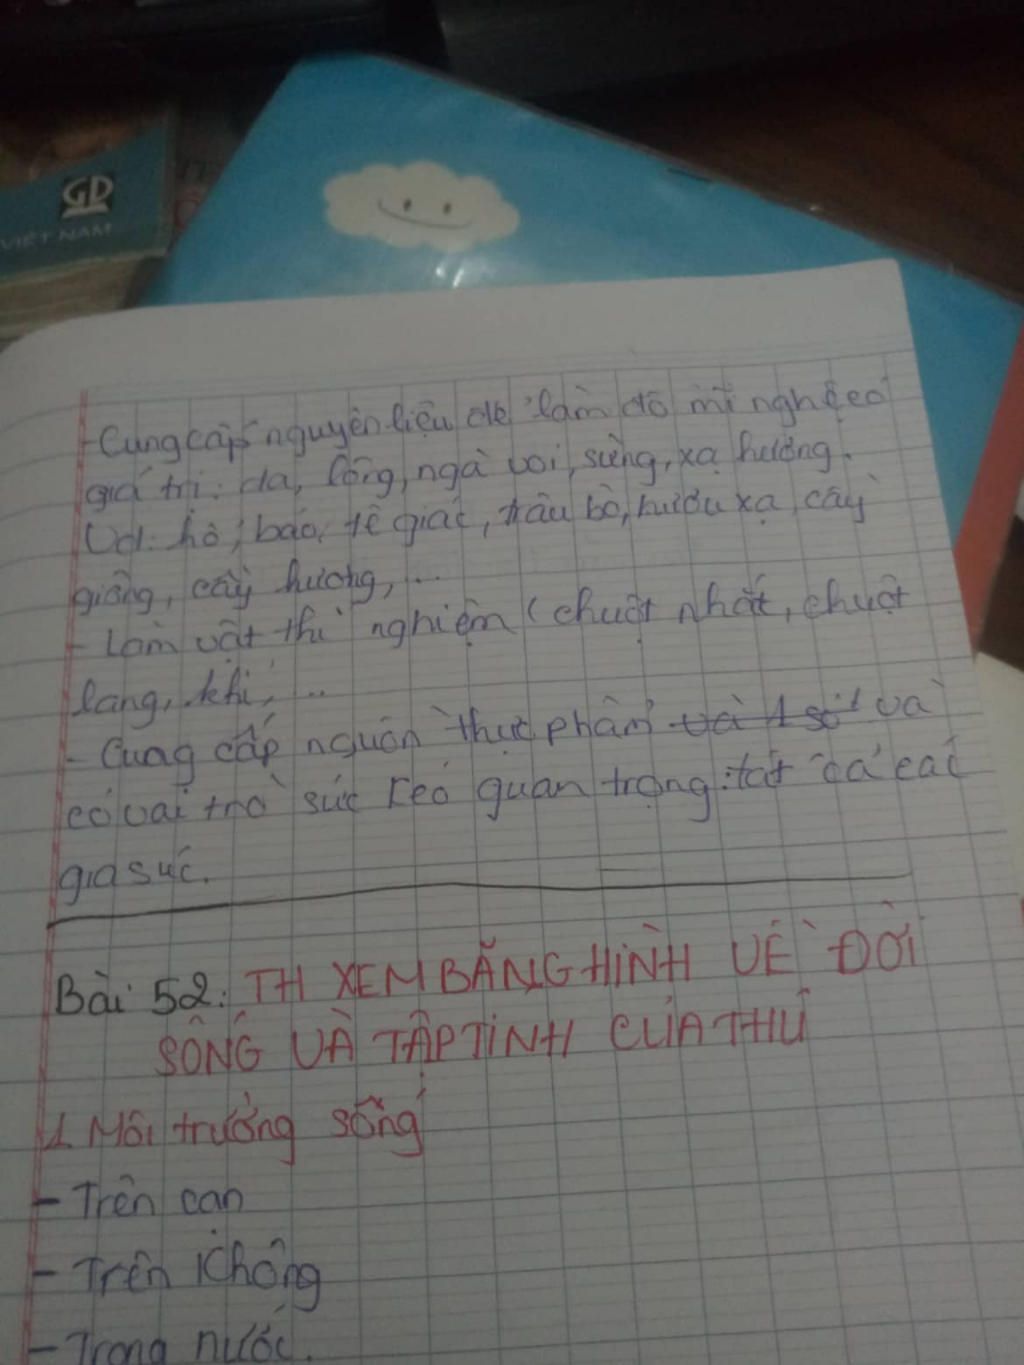 GD
VIỆT NAM
- Cung cấp nguyên liệu để làm đồ mĩ nghệ có
giá trị: da, lông, ngà voi, sừng, xạ hương.
Vd: hổ, báo, tê giác, trâu bò, hươu xạ, cầy
giông, cầy hương, ...
- Làm vật thí nghiệm (chuột nhắt, chuột
lang, khỉ, ...
- Cung cấp nguồn thực phẩm và 1 số và
có vai trò sức kéo quan trọng: tất cả các
gia súc.
Bài 52: TH XEM BĂNG HÌNH VỀ ĐỜI
SỐNG VÀ TẬP TÍNH CỦA THÚ
1. Môi trường sống
- Trên cạn
- Trên không
- Trong nước.